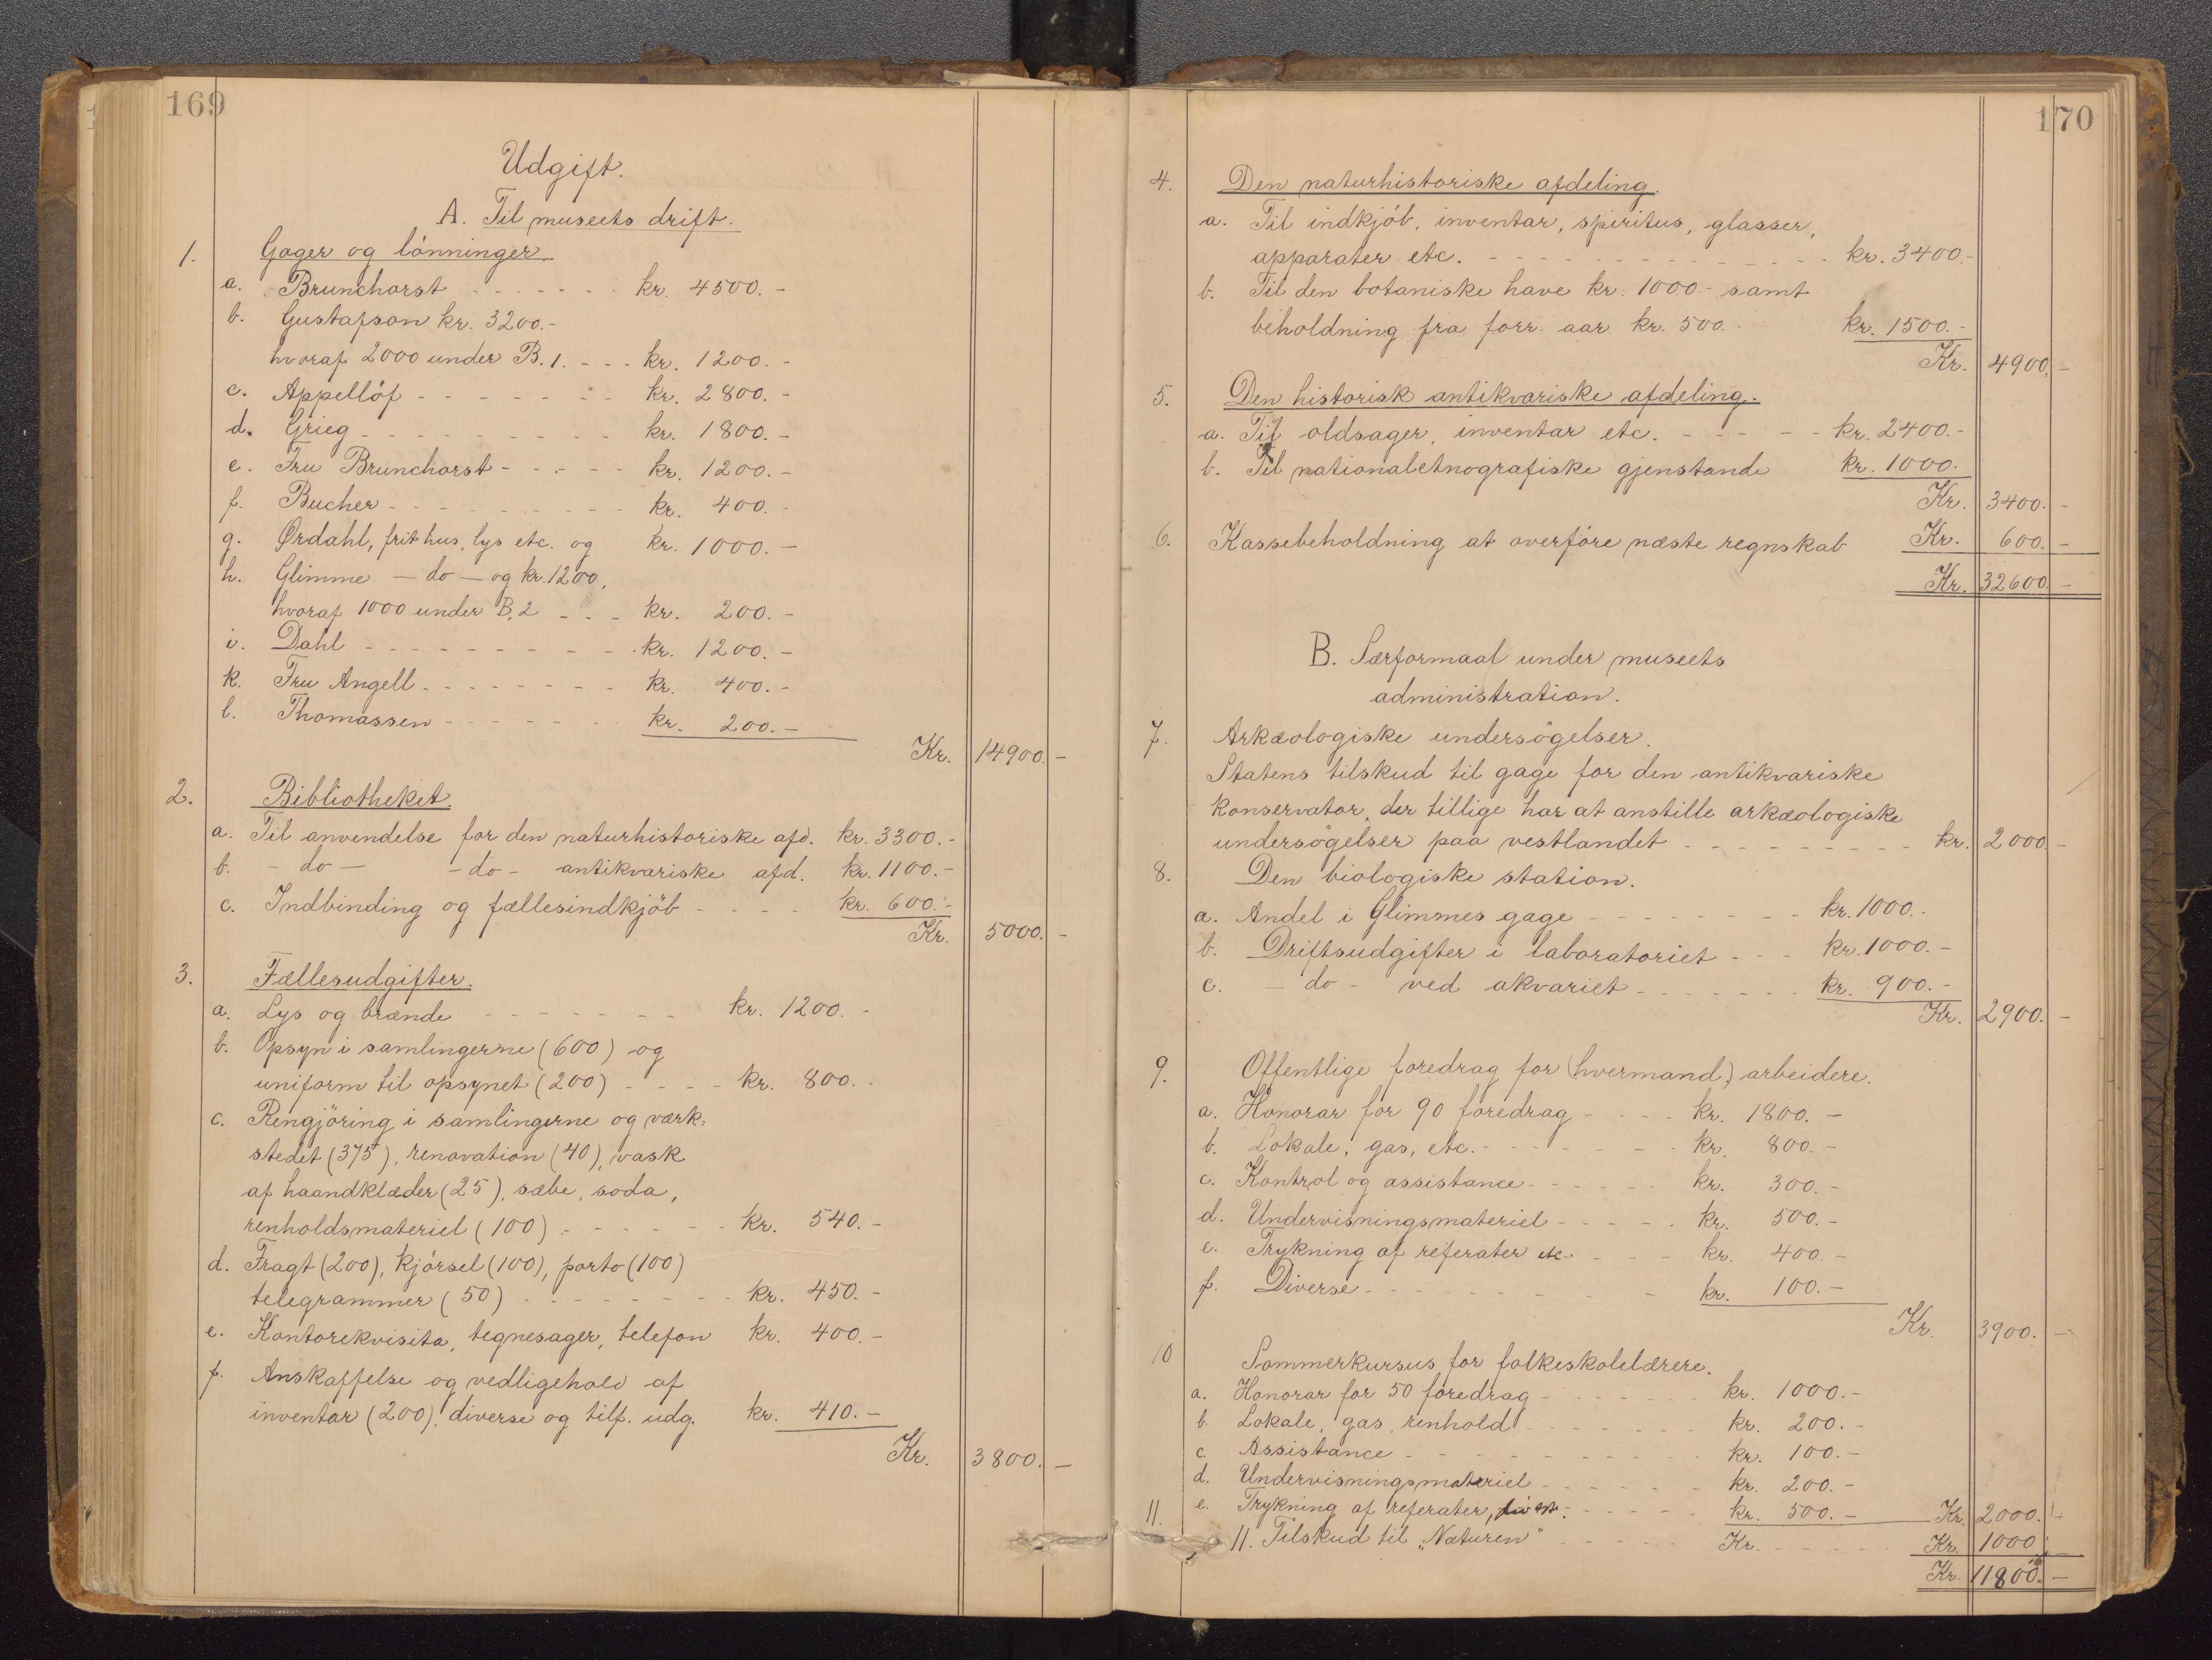 169
Udgift.
A. Til museets drift.
1. Gager og lönninger.
a. Brunchorst - - - - - - - kr. 4500.-
b. Gustafson kr. 3200.-
hvoraf 2000 under B.1. - - - kr. 1200.-
c. Appellöf - - - - - - - kr. 2800.-
d. Grieg - - - - - - - - - - kr. 1800.-
e. Fru Brunchorst - - - - - kr. 1200.-
f. Bucher - - - - - - - - - - kr. 400.-
g. Ørdahl, frit hus, lys etc. og kr. 1000.-
h. Glimme - do - og kr. 1200,
hvoraf 1000 under B,2 - - - kr. 200.-
i. Dahl - - - - - - - - - - kr. 1200.-
k. Fru Angell - - - - - - - - kr. 400.-
l. Thomassen - - - - - - - kr. 200.-
Kr. 14900.-
2. Bibliotheket.
a. Til anvendelse for den naturhistoriske afd. kr. 3300.-
b. - do - - do - antikvariske afd. kr. 1100.-
c. Indbinding og fællesindkjöb - - - - kr. 600.-
Kr. 5000.-
3. Fællesudgifter.
a. Lys og brænde - - - - - - - kr. 1200.-
b. Opsyn i samlingerne (600) og
uniform til opsynet (200) - - - - kr. 800.-
c. Rengjöring i samlingerne og værk-
stedet (375), renovation (40), vask
af haandklæder (25), sæbe, soda,
renholdsmateriel (100) - - - - - - kr. 540.-
d. Fragt (200), kjörsel (100), porto (100)
telegrammer (50) - - - - - - - - - kr. 450.-
e. Kontorekvisita, tegnesager, telefon kr. 400.-
f. Anskaffelse og vedligehold af
inventar (200), diverse og tilf. udg. kr. 410.-
Kr. 3800.-
170
4. Den naturhistoriske afdeling.
a. Til indkjöb, inventar, spiritus, glasser,
apparater etc. - - - - - - - - - - - - - - kr. 3400.-
b. Til den botaniske have kr. 1000.- samt
beholdning fra forr. aar kr. 500.- kr. 1500.-
Kr. 4900.-
5. Den historisk antikvariske afdeling.
a. Til oldsager, inventar etc. - - - - - kr. 2400.-
b. Til nationaletnografiske gjenstande kr. 1000.
Kr. 3400.-
6. Kassebeholdning at overföre næste regnskab Kr. 600.-
Kr. 32600.-
B. Særformaal under museets
administration.
7. Arkæologiske undersögelser.
Statens tilskud til gage for den antikvariske
konservator, der tillige har at anstille arkæologiske
undersögelser paa vestlandet - - - - - - - - - kr. 2000.-
8. Den biologiske station.
a. Andel i Glimmes gage - - - - - - - - kr. 1000.-
b. Driftsudgifter i laboratoriet - - - kr. 1000.-
c. - do - ved akvariet - - - - - - - kr. 900.-
Kr. 2900.-
9. Offentlige foredrag for (hvermand,) arbeidere.
a. Honorar for 90 foredrag - - - - kr. 1800.-
b. Lokale, gas, etc. - - - - - - - - kr. 800.-
c. Kontrol og assistance - - - - - - kr. 300.-
d. Undervisningsmateriel - - - - - kr. 500.-
e. Trykning af referater etc. - - - kr. 400.-
f. Diverse - - - - - - - - - kr. 100.-
Kr. 3900.-
10 Sommerkursus for folkeskolelærere.
a. Honorar for 50 foredrag - - - - - - - kr. 1000.-
b. Lokale, gas, renhold - - - - - - - kr. 200.-
c. Assistance - - - - - - - - - - kr. 100.-
d. Undervisningsmateriel - - - - - - kr. 200.-
e. Trykning af referater, - - - - - kr. 500.- Kr. 2000.-
11. 11. Tilskud til "Naturen" - - - - - Kr. - - - - - - Kr. 1000.-
Kr. 11800.-